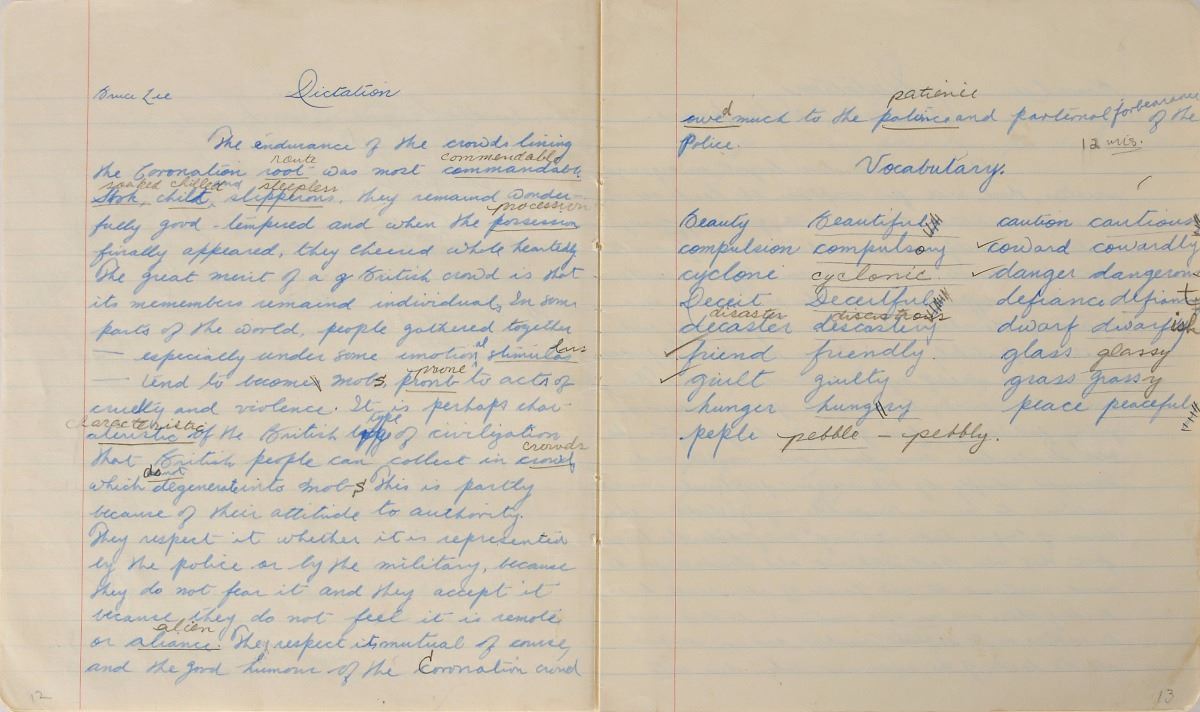 Bruce Lee Dictation
The endurance of the crowds lining
route commendable
the Coronation root was most commandable
soaked chilled and sleepless
Stok, child, slipperons. They remained wonder-
procession
fuely good-tempered and when the possession
finally appeared, they cheered whole heartedly
The great merit of a g British crowd is that
its memembers remaind individual, In some
parts of the world, people gathered together
— especially under some emotional stimulas lus
prone
— tend to become mobs pronb to acts of
cruelty and violence. It is perhaps char-
characteristic type
ateristic of the British type of civilization
crowds
that British people can collect in crowds
do not
which degenerate into mobs, This is partly
because of their attitude to authority.
They respect it whether it is represented
by the police or by the military, because
they do not fear it and they accept it
because they do not feel it is remote
alien
or aliance. The respect is mutual of course,
and the good humour of the Coronation crowd
12
patience
owed much to the patince and parternal forbearance of the
Police.
12 mis.
Vocabulary.
Beauty Beautiful caution cautious
compulsion compulsory coward cowardly
cyclone cyclonic danger dangerous
Deceit Deceitful defiance defiant
disaster disastrous
decaster descastery dwarf dwarfish
friend friendly. glass glassy
giult giulty grass grassy
hunger hungry peace peaceful
peple pebble – pebbly.
13